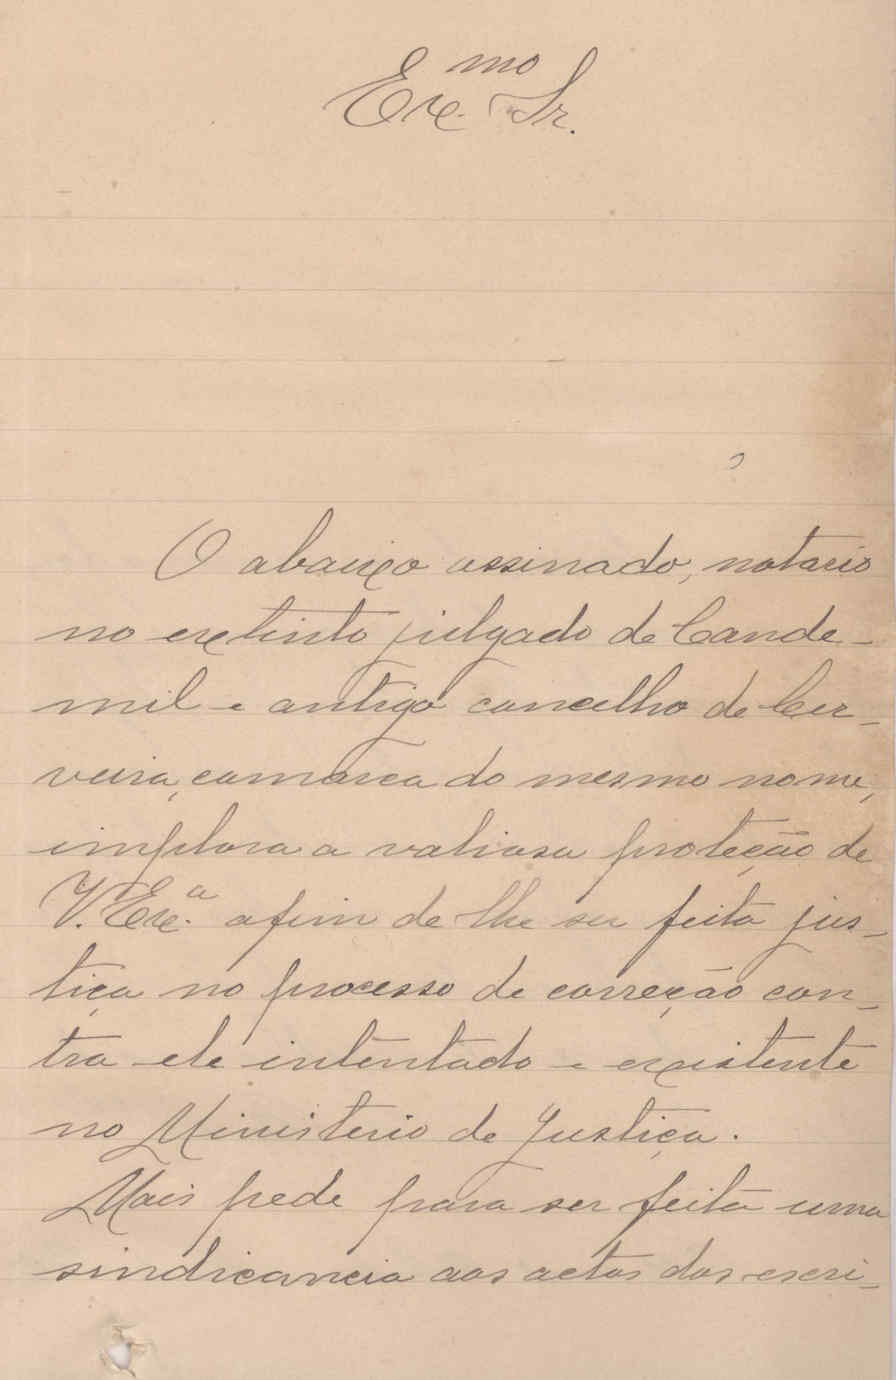 Ex.mo Sr.
O abaixo assinado, notario
no extinto julgado de Cande-
mil e antigo concelho de Cer-
veira, comarca do mesmo nome,
implora a valiosa proteção de
V. Ex.a afim de lhe ser feita jus-
tiça no processo de correção con-
tra ele intentado e existente
no Ministerio de Justiça.
Mais pede para ser feita uma
sindicancia aos actos dos escri-